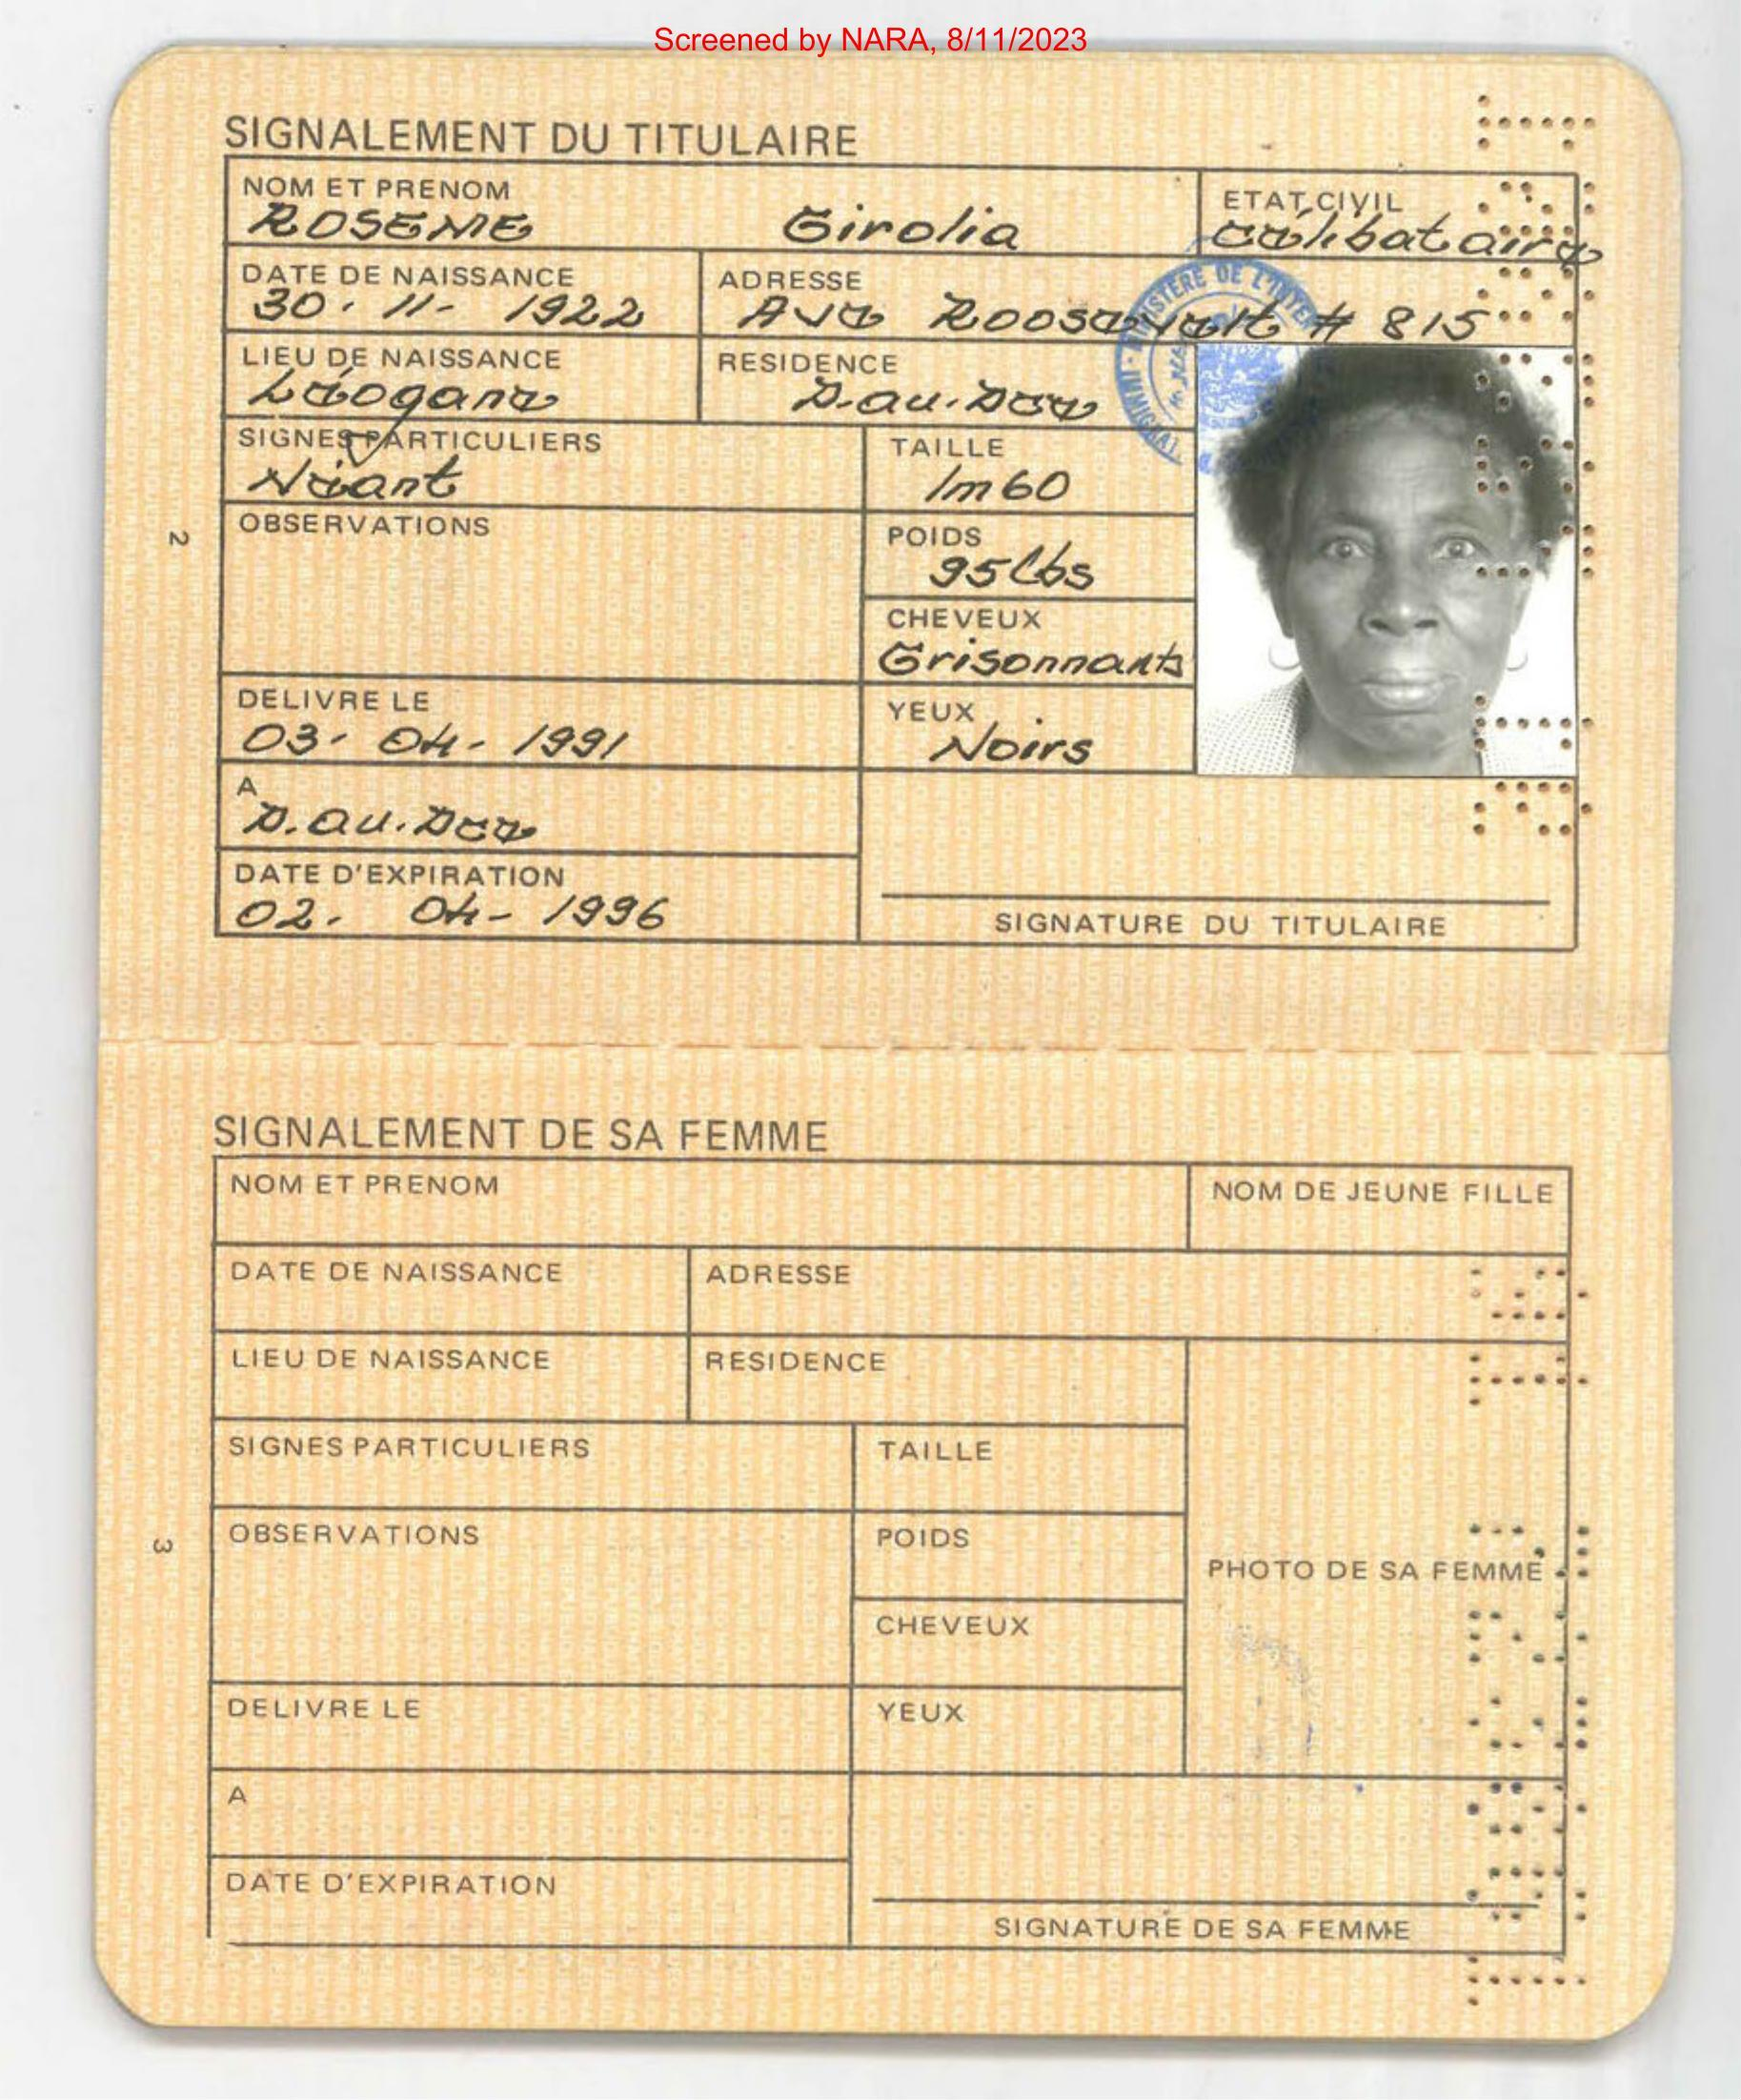 Screened by NARA, 8/11/2023
SIGNALEMENT DU TITULAIRE
NOM ET PRENOM
ROSEME Girolia
ETAT CIVIL
Célibataire
DATE DE NAISSANCE
30. 11- 1922
ADRESSE
Ave Roosevelt # 815
LIEU DE NAISSANCE
Léogane
RESIDENCE
P.au.Pce
SIGNES PARTICULIERS
Néant
TAILLE
1m60
OBSERVATIONS
POIDS
95 lbs
CHEVEUX
Grisonnants
DELIVRE LE
03- 04- 1991
YEUX
Noirs
A
P.au.Pce
DATE D'EXPIRATION
02. 04- 1996
SIGNATURE DU TITULAIRE
2
SIGNALEMENT DE SA FEMME
NOM ET PRENOM
NOM DE JEUNE FILLE
DATE DE NAISSANCE
ADRESSE
LIEU DE NAISSANCE
RESIDENCE
SIGNES PARTICULIERS
TAILLE
OBSERVATIONS
POIDS
PHOTO DE SA FEMME
CHEVEUX
DELIVRE LE
YEUX
A
DATE D'EXPIRATION
SIGNATURE DE SA FEMME
3